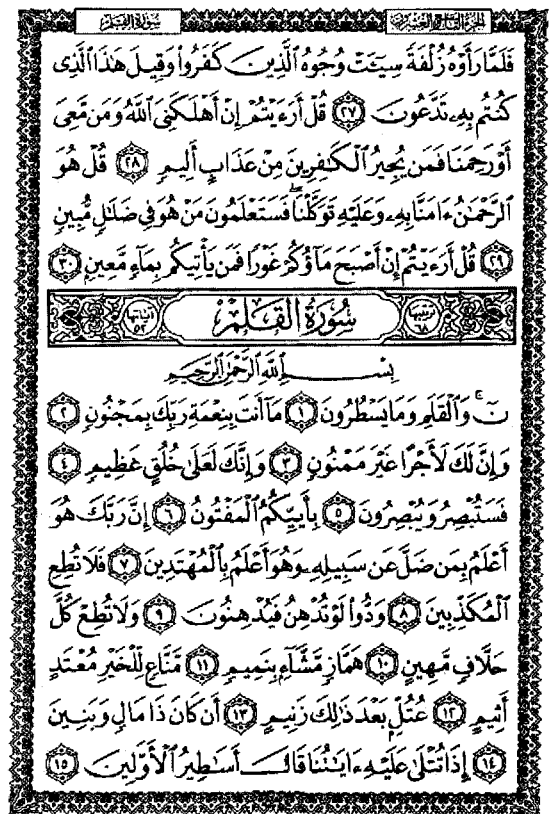 الجزء التاسع والعشرون سورة القلم
فَلَمَّا رَأَوْهُ زُلْفَةً سِيٓـَٔتْ وُجُوهُ ٱلَّذِينَ كَفَرُوا۟ وَقِيلَ هَٰذَا ٱلَّذِى
كُنتُم بِهِۦ تَدَّعُونَ ٢٧ قُلْ أَرَءَيْتُمْ إِنْ أَهْلَكَنِىَ ٱللَّهُ وَمَن مَّعِىَ
أَوْ رَحِمَنَا فَمَن يُجِيرُ ٱلْكَٰفِرِينَ مِنْ عَذَابٍ أَلِيمٍ ٢٨ قُلْ هُوَ
ٱلرَّحْمَٰنُ ءَامَنَّا بِهِۦ وَعَلَيْهِ تَوَكَّلْنَا ۖ فَسَتَعْلَمُونَ مَنْ هُوَ فِى ضَلَٰلٍ مُّبِينٍ
٢٩ قُلْ أَرَءَيْتُمْ إِنْ أَصْبَحَ مَآؤُكُمْ غَوْرًا فَمَن يَأْتِيكُم بِمَآءٍ مَّعِينٍۭ ٣٠
ترتيبها ٦٨ سُورَةُ الْقَلَمِ آياتها ٥٢
بِسْمِ ٱللَّهِ ٱلرَّحْمَٰنِ ٱلرَّحِيمِ
نٓ ۚ وَٱلْقَلَمِ وَمَا يَسْطُرُونَ ١ مَآ أَنتَ بِنِعْمَةِ رَبِّكَ بِمَجْنُونٍ ٢
وَإِنَّ لَكَ لَأَجْرًا غَيْرَ مَمْنُونٍ ٣ وَإِنَّكَ لَعَلَىٰ خُلُقٍ عَظِيمٍ ٤
فَسَتُبْصِرُ وَيُبْصِرُونَ ٥ بِأَييِّكُمُ ٱلْمَفْتُونُ ٦ إِنَّ رَبَّكَ هُوَ
أَعْلَمُ بِمَن ضَلَّ عَن سَبِيلِهِۦ وَهُوَ أَعْلَمُ بِٱلْمُهْتَدِينَ ٧ فَلَا تُطِعِ
ٱلْمُكَذِّبِينَ ٨ وَدُّوا۟ لَوْ تُدْهِنُ فَيُدْهِنُونَ ٩ وَلَا تُطِعْ كُلَّ
حَلَّافٍ مَّهِينٍ ١٠ هَمَّازٍ مَّشَّآءٍۭ بِنَمِيمٍ ١١ مَّنَّاعٍ لِّلْخَيْرِ مُعْتَدٍ
أَثِيمٍ ١٢ عُتُلٍّۭ بَعْدَ ذَٰلِكَ زَنِيمٍ ١٣ أَن كَانَ ذَا مَالٍ وَبَنِينَ
١٤ إِذَا تُتْلَىٰ عَلَيْهِ ءَايَٰتُنَا قَالَ أَسَٰطِيرُ ٱلْأَوَّلِينَ ١٥